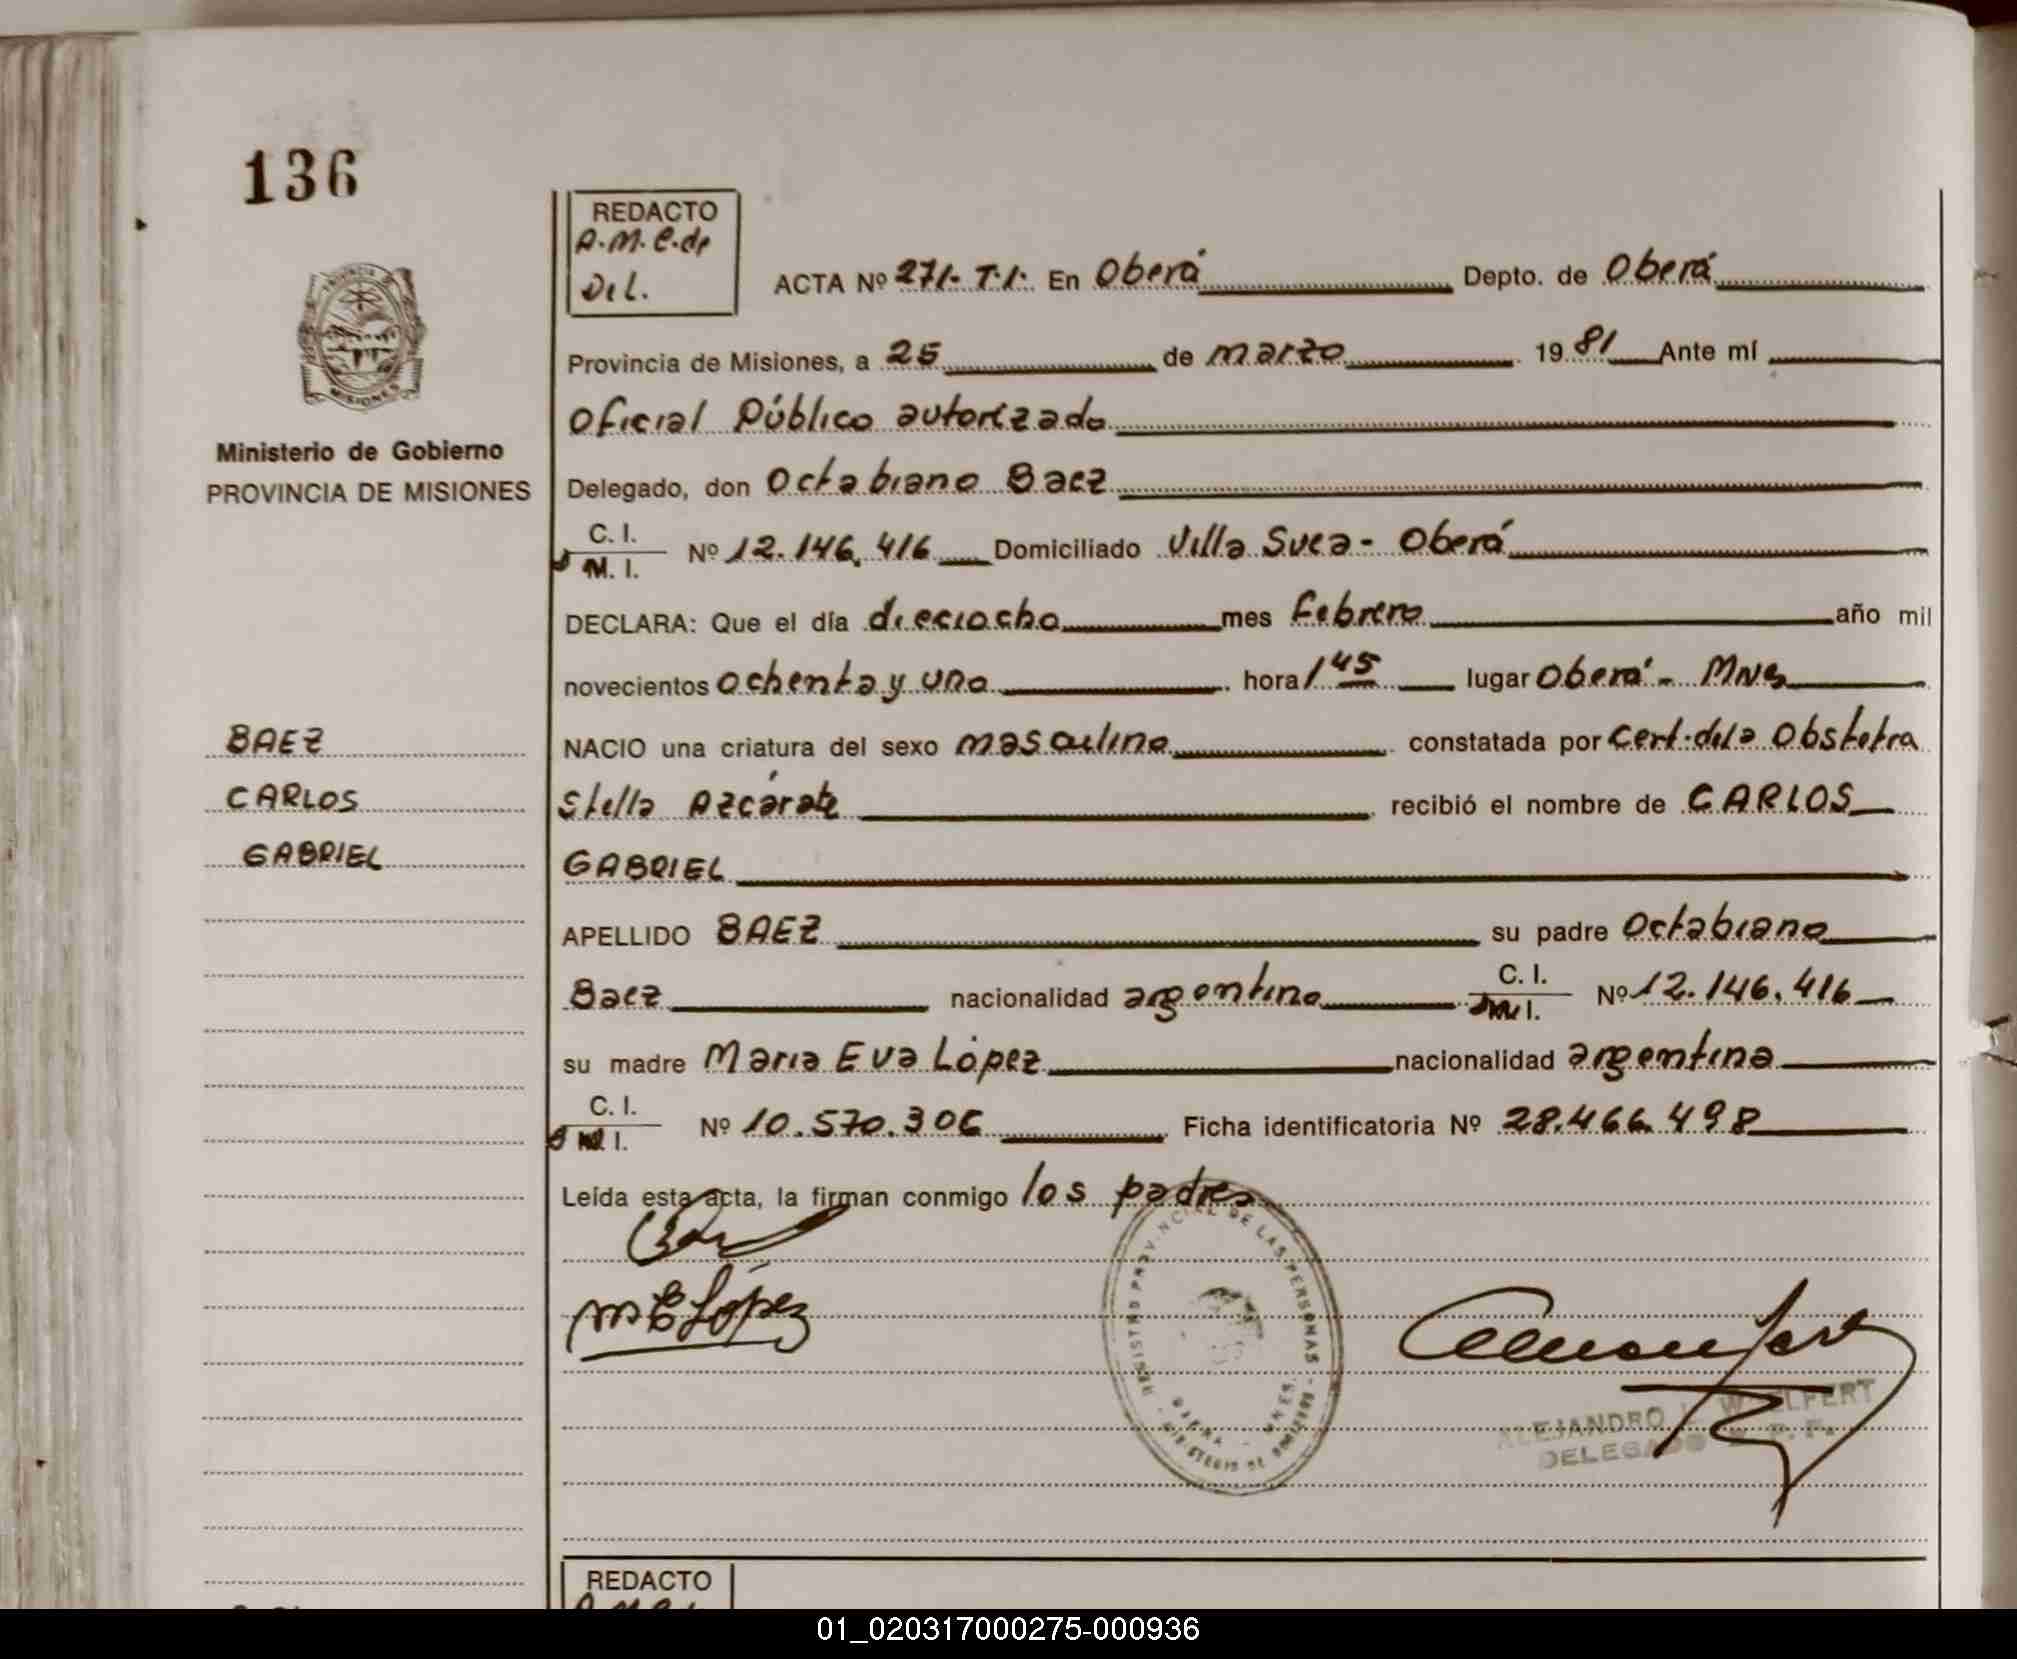 136
REDACTO
A.M.C.de
Del.
ACTA Nº 271- T.I. En Oberá Depto. de Oberá
Provincia de Misiones, a 25 de marzo 1981 Ante mí
Oficial Público autorizado
Ministerio de Gobierno
PROVINCIA DE MISIONES
Delegado, don Octabiano Baez
C. I.
M. I.
Nº 12.146.416 Domiciliado Villa Svea - Oberá
DECLARA: Que el día dieciocho mes Febrero año mil
novecientos ochenta y uno hora 1 45 lugar Oberá - Mnes
BAEZ
NACIO una criatura del sexo masculino constatada por Cert. de la Obstetra
CARLOS
Stella Azcárate recibió el nombre de CARLOS
GABRIEL
GABRIEL
APELLIDO BAEZ su padre Octabiano
Baez nacionalidad argentina C. I. M. I. Nº 12.146.416
su madre Maria Eva López nacionalidad argentina
C. I.
M. I.
Nº 10.570.306 Ficha identificatoria Nº 28.466.498
Leída esta acta, la firman conmigo los padres
M E López
REGISTRO PROVINCIAL DE LAS PERSONAS - MINISTERIO DE GOBIERNO
OBERA - MNES.
ALEJANDRO
DELEGADO
REDACTO
01_020317000275-000936